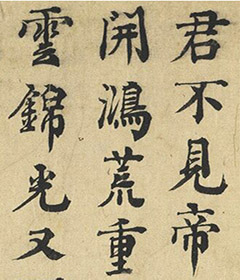 君不見帝
開鴻荒重
雲錦光又